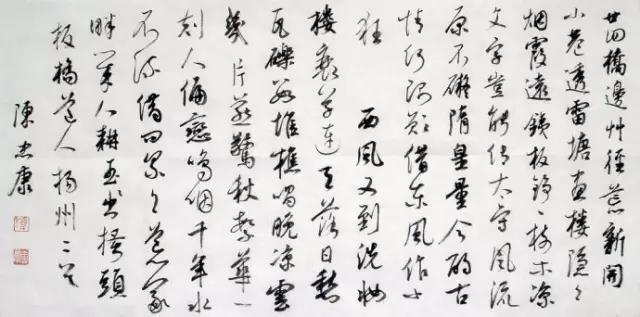 廿四橋邊艸徑荒新開
小巷透雷塘畫樓隱々
烟霞遠鐵板錚々樹木凉
文字豈能傳太守風流
原不礙隋皇量今酌古
情何限願借東風作小
狂　西風又到洗妝
樓衰草連天落日愁
瓦礫數堆樵唱晚凉雲
幾片燕驚秋繁華一
刻人偏戀嗚咽千年水
不流借問累々荒冢
畔幾人耕玉出搔頭
板橋道人揚州二首
陳忠康